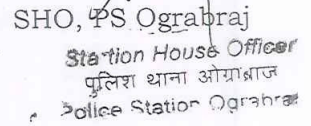 SHO, PS Ograbraj
Station House Officer
पुलिश थाना ओग्राब्राज
Police Station Ograbraj